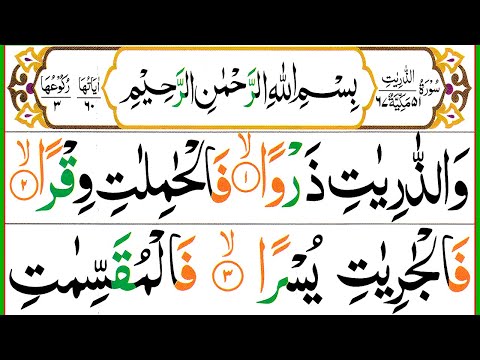 سُوْرَةُ الذّٰرِيٰتِ ٥١ مَكِّيَّةٌ ٦٧
بِسْمِ اللّٰهِ الرَّحْمٰنِ الرَّحِيْمِ
اٰيَاتُهَا ٦٠ رُكُوْعُهَا ٣
وَالذّٰرِيٰتِ ذَرْوًا ۙ‏﴿۱﴾ فَالْحٰمِلٰتِ وِقْرًا ۙ‏﴿۲﴾
فَالْجٰرِيٰتِ يُسْرًا ۙ‏﴿۳﴾ فَالْمُقَسِّمٰتِ